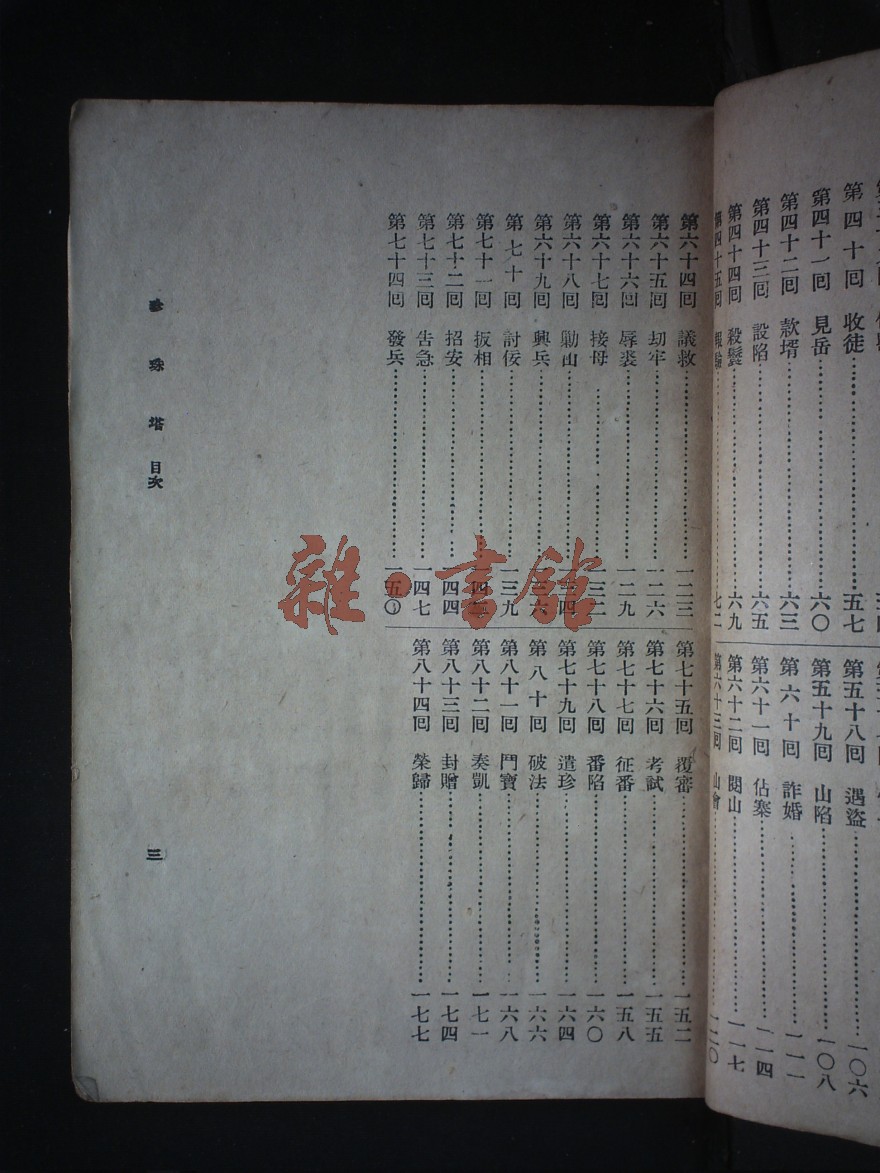 第四十回 收徒 五七
第四十一回 見岳 六〇
第四十二回 款壻 六三
第四十三回 設陷 六五
第四十四回 殺鬟 六九
第四十五回 七二
第五十八回 遇盜 一〇六
第五十九回 山陷 一〇八
第六十回 詐婚 一一一
第六十一回 佔寨 一一四
第六十二回 鬧山 一一七
第六十三回 山會 一二〇
第六十四回 議救 一二三
第六十五回 劫牢 一二六
第六十六回 辱裘 一二九
第六十七回 接母 一三二
第六十八回 勦山 一三四
第六十九回 興兵 一三六
第七十回 討佞 一三九
第七十一回 扳相 一四二
第七十二回 招安 一四四
第七十三回 告急 一四七
第七十四回 發兵 一五〇
第七十五回 覆審 一五二
第七十六回 考試 一五五
第七十七回 征番 一五八
第七十八回 番陷 一六〇
第七十九回 遣珍 一六四
第八十回 破法 一六六
第八十一回 鬥寶 一六八
第八十二回 奏凱 一七一
第八十三回 封贈 一七四
第八十四回 榮歸 一七七
珍珠塔 目次
三
雜·書館